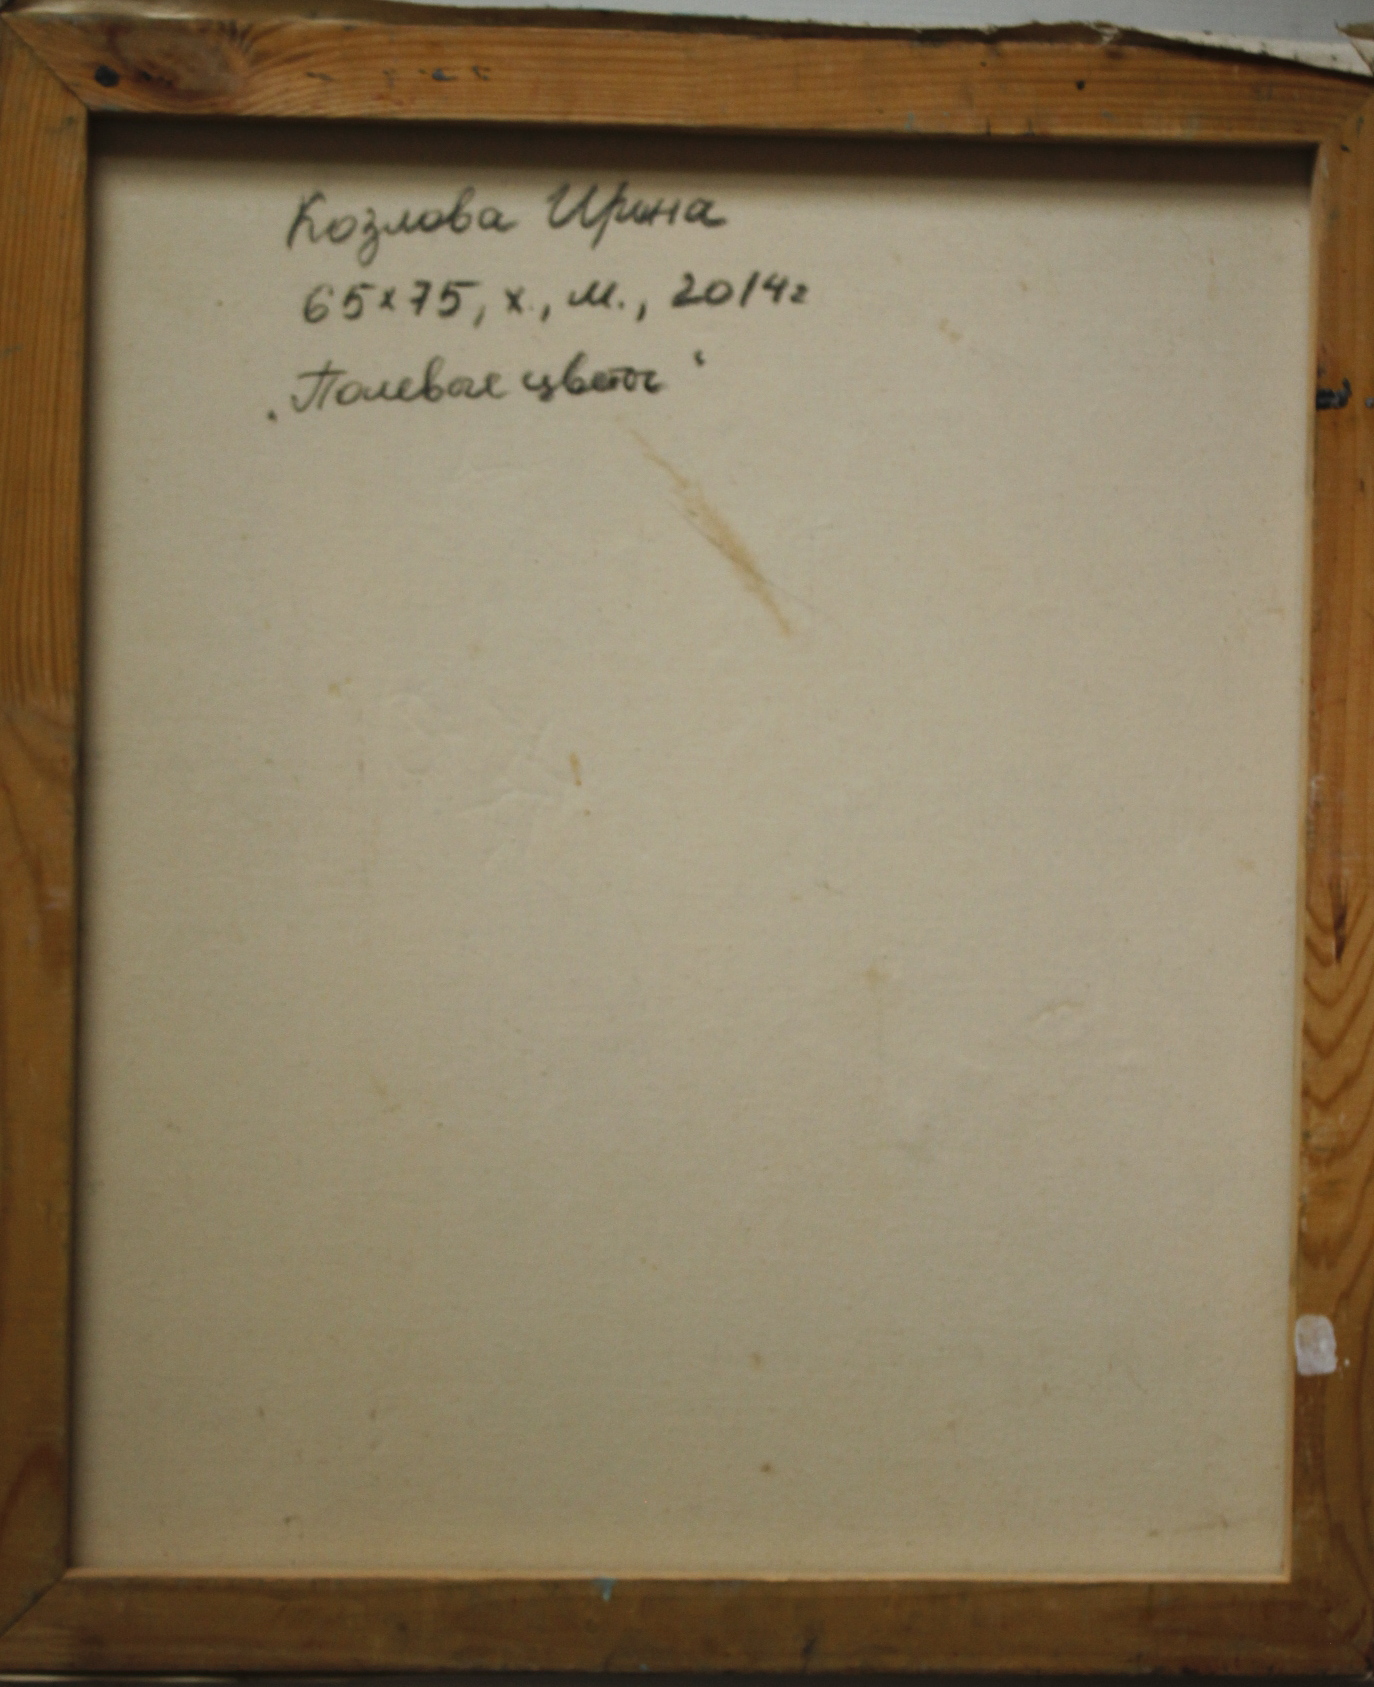 Козлова Ирина
65×75, х., м., 2014г
„Полевые цветы“